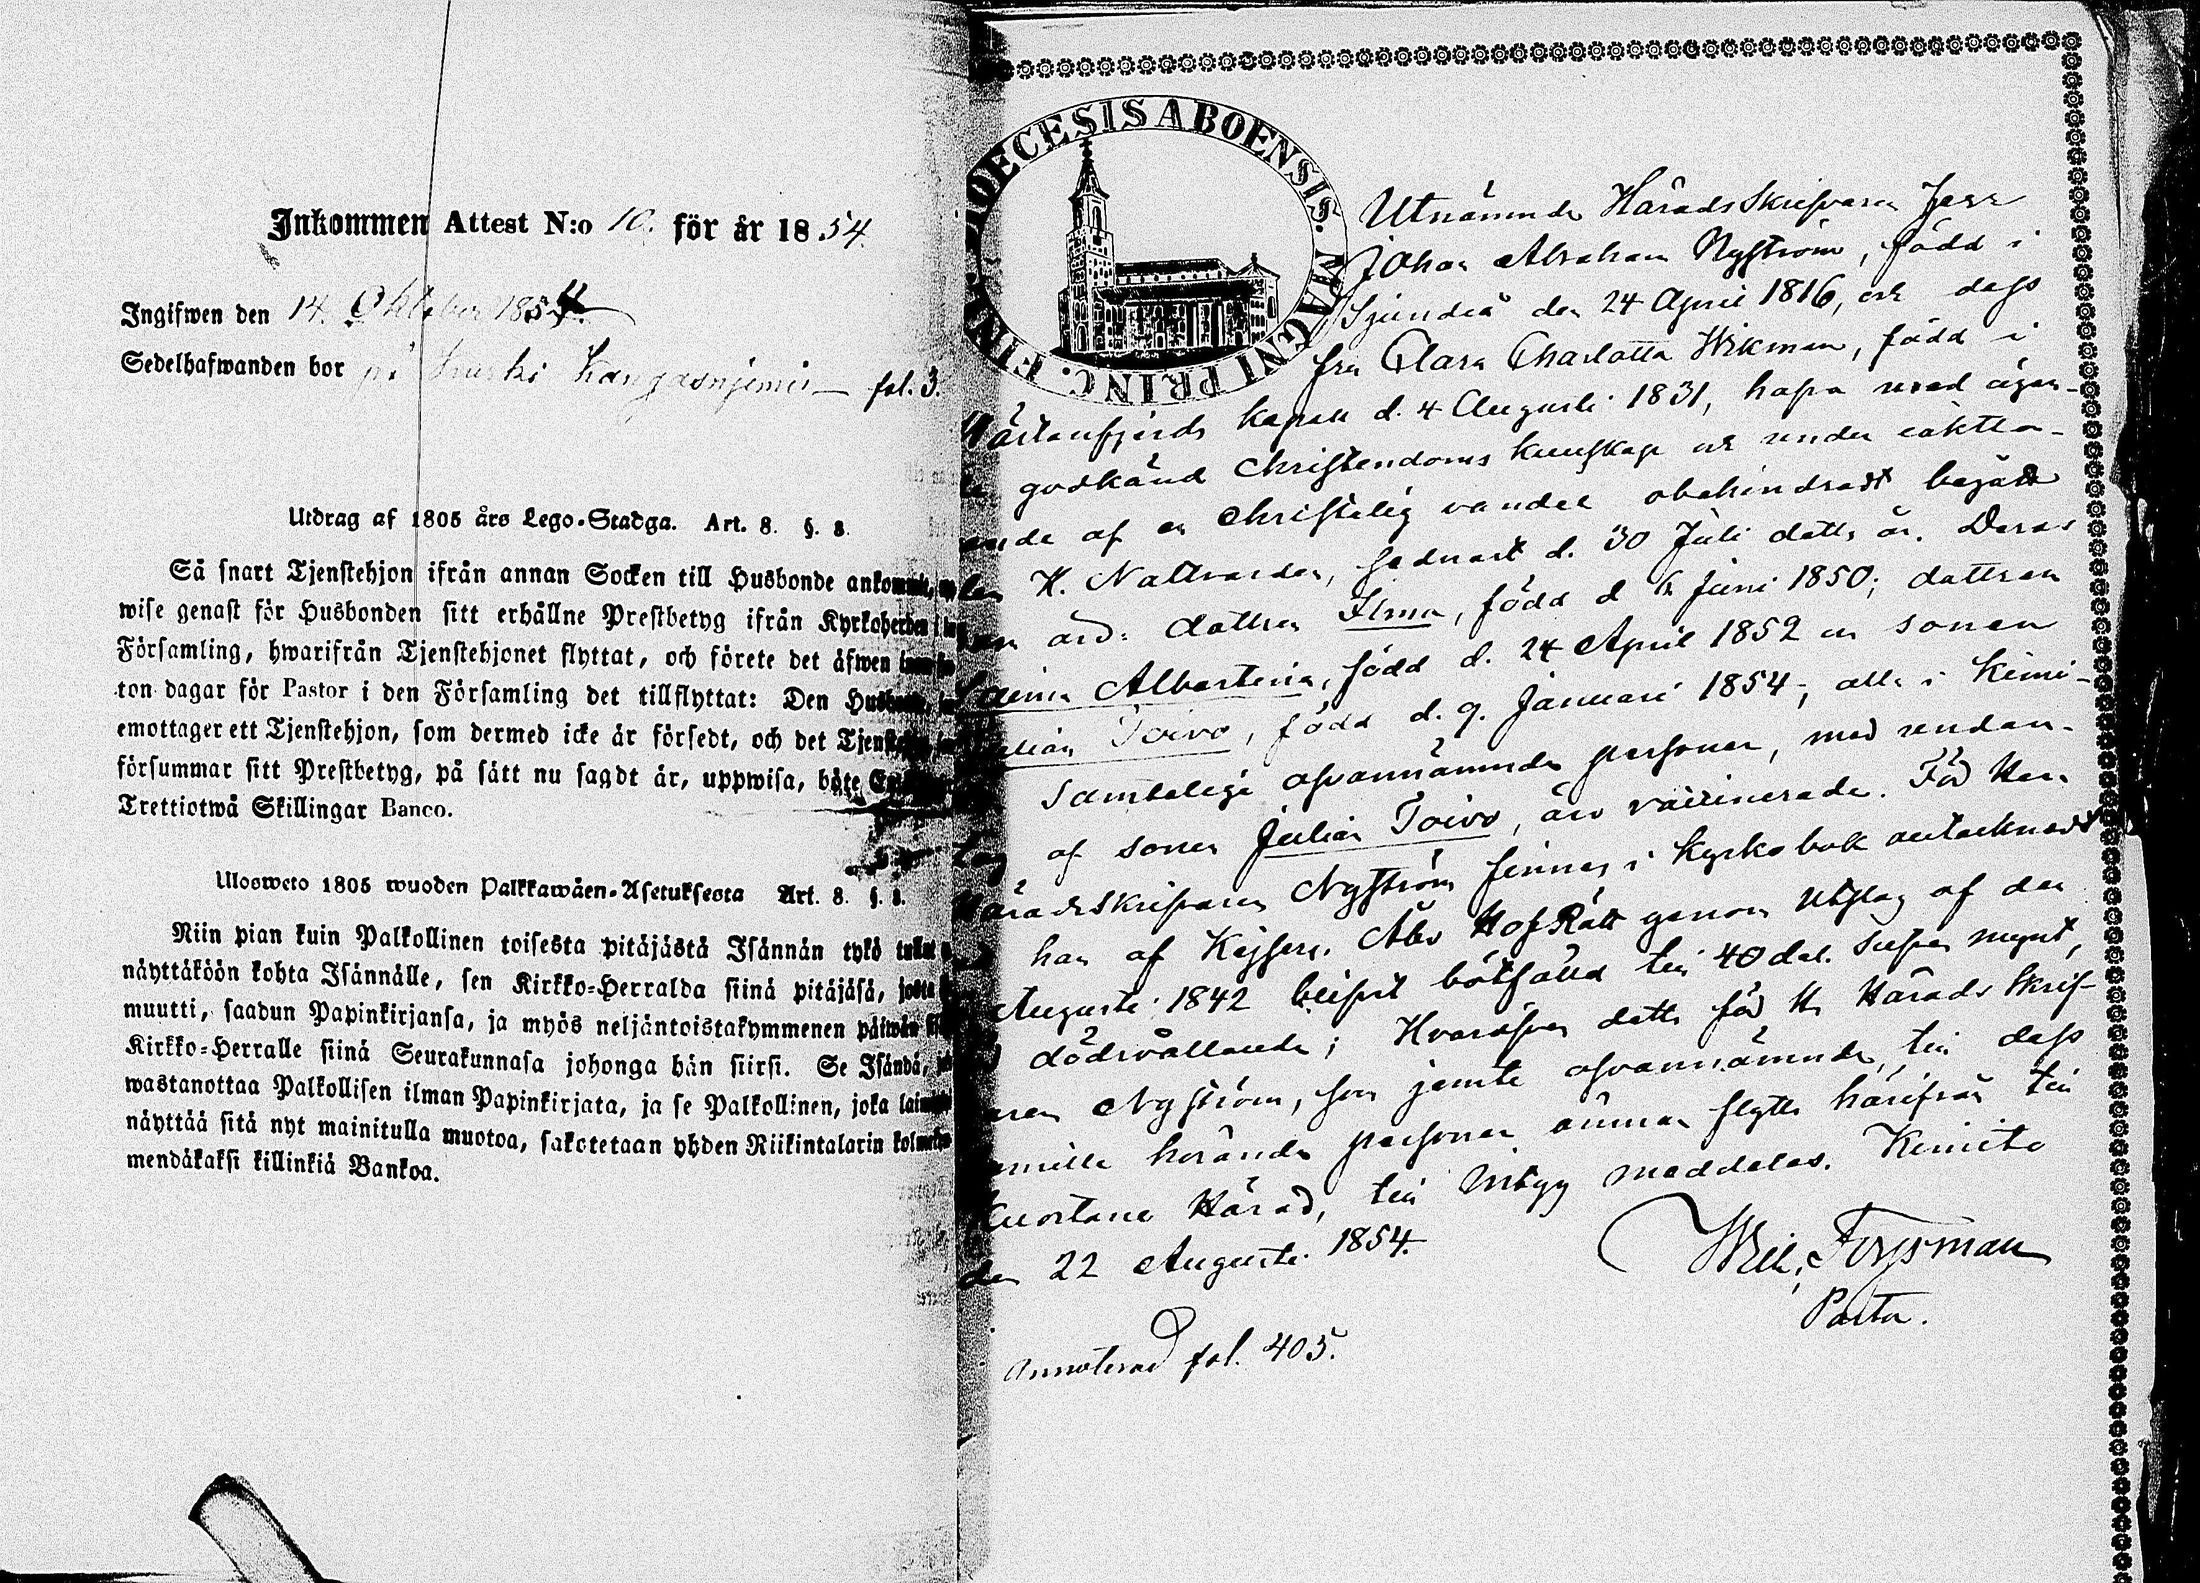 Inkommen Attest N:o 10. för år 1854.
Ingifwen den 14. Oktober 1854.
Sedelhafwanden bor på Kangasnjemi fol. 3.
Utdrag af 1805 års Lego-Stadga. Art. 8. §. 8.
Så snart Tjenstehjon ifrån annan Socken till Husbonde ankommit,
wise genast för Husbonden sitt erhållne Prestbetyg ifrån Kyrkoherden i
Församling, hwarifrån Tjenstehjonet flyttat, och förete det äfwen
ton dagar för Pastor i den Församling det tillflyttat: Den
emottager ett Tjenstehjon, som dermed icke är försedt, och det
försummar sitt Prestbetyg, på sätt nu sagdt är, uppwisa, böte
Trettiotwå Skillingar Banco.
Ulosweto 1805 wuoden Palkkawäen-Asetuksesta Art. 8. §. 8.
Niin pian kuin Palkollinen toisesta pitäjästä Isännän tykö
näyttäköön kohta Isännälle, sen Kirkko-Herralda siinä pitäjäsä, josta
muutti, saadun Papinkirjansa, ja myös neljäntoistakymmenen päiwän
Kirkko-Herralle siinä Seurakunnasa johonga hän siirsi. Se Isändä,
wastanottaa Palkollisen ilman Papinkirjata, ja se Palkollinen, joka
näyttää sitä nyt mainitulla muotoa, sakotetaan yhden Riikintalarin
mendäkaksi killinkiä Bankoa.
DIOECESIS ABOENSIS. MAGNI PRINC. FINL.
Utnämnde Häradsskrifvaren
Johan Abraham Nyström, född i
Sjundeå den 24 April 1816, och dess
fru Clara Charlotta Wikman, född i
Västanfjerds kapell d. 4 Augusti 1831, hafva med ägan-
de godkänd Christendoms kunskap och under iakttа-
ande af en Christelig vandel obehindradt begått
H. Nattvarden, sednast d. 30 Juli detta år. Deras
barn äro: dottren Ilma, född d. Juni 1850; dottren
Albertina, född d. 24 April 1852 och sonen
Julian Toivo, född d. 9. Januari 1854, alla i Kimi-
to. Samtelige ofvannämnde personer, med undan-
tag af sonen Julian Toivo, äro vaccinerade. För Herr
Häradsskrifvaren Nyström finnes i Kyrkobok antecknadt
att han af Kejserl. Åbo Hof Rätt genom Utslag af den
Augusti 1842 blifvit bötfälld till 40 dal. Silfver mynt,
för dödsvållande; Hvaröfver detta för H. Härads Skrif-
varen Nyström, som jemte ofvannämnde, till dess
familie hörande personer ämnar flytta härifrån till
Kuortane Härad, till Intyg meddelas. Kimito
den 22 Augusti 1854.
Wilh. Forssman
Pastor.
Annoterad fol. 405.